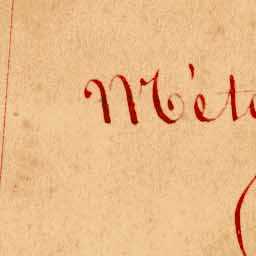 M'éte